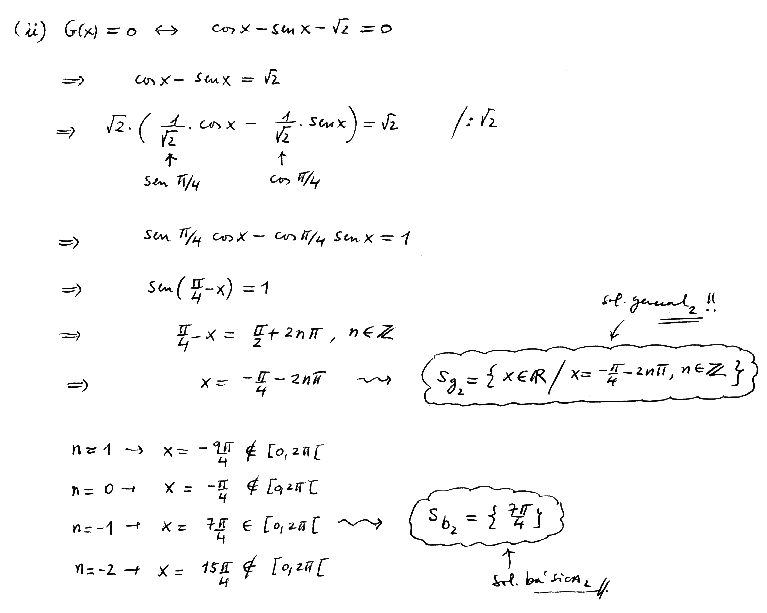 (ii) G(x) = 0 ↔ cos x − sen x − √2 = 0
⇒ cos x − sen x = √2
⇒ √2 · ( 1/√2 · cos x − 1/√2 · sen x ) = √2 / : √2
↑ ↑
sen π/4 cos π/4
⇒ sen π/4 cos x − cos π/4 sen x = 1
⇒ sen( π/4 − x ) = 1
sol. general₂ !!
⇒ π/4 − x = π/2 + 2nπ, n ∈ ℤ
⇒ x = −π/4 − 2nπ ⇝ S_g₂ = { x ∈ ℝ / x = −π/4 − 2nπ, n ∈ ℤ }
n = 1 → x = −9π/4 ∉ [0, 2π[
n = 0 → x = −π/4 ∉ [0, 2π[
n = −1 → x = 7π/4 ∈ [0, 2π[ ⇝ S_b₂ = { 7π/4 }
n = −2 → x = 15π/4 ∉ [0, 2π[
sol. básica₂ //